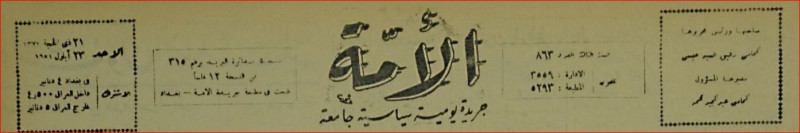 صاحبها ورئيس تحريرها
المحامي رفيق السيد عيسى
مديرها المسؤول
المحامي عبد المجيد محمد
السنة الثالثة العدد ٨٦٣
تلفون
الادارة : ٣٥٥٩
المطبعة : ٥٢٩٣
الأمة
جريدة يومية سياسية جامعة
٣١٥
ثمن النسخة ١٢ فلساً
طبعت في مطبعة جريدة الامة - بغداد
الاحد
٢١ ذي الحجة ١٣٧٠
٢٣ أيلول ١٩٥١
الاشتراك
في بغداد ٤ دنانير
داخل العراق ٤٫٥٠٠
خارج العراق ٥ دنانير